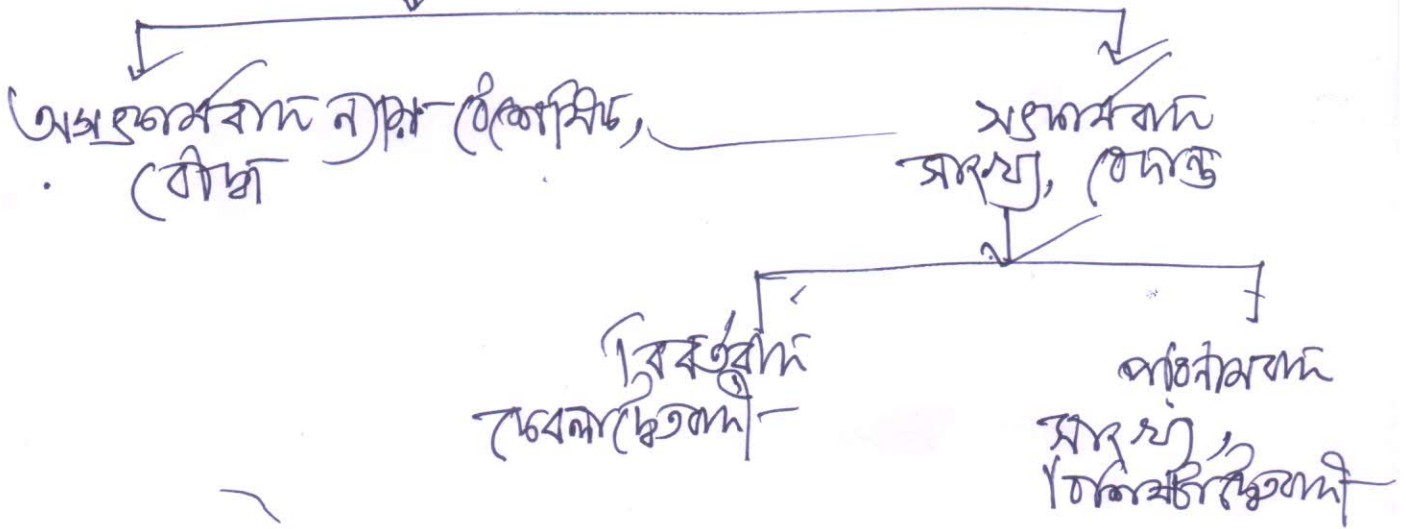 অসৎকার্যবাদ ন্যায়-বৈশেষিক,
বৌদ্ধ
সৎকার্যবাদ
সাংখ্য, বেদান্ত
বিবর্তবাদ
কেবলাদ্বৈতবাদী
পরিনামবাদ
সাংখ্য,
বিশিষ্টাদ্বৈতবাদী